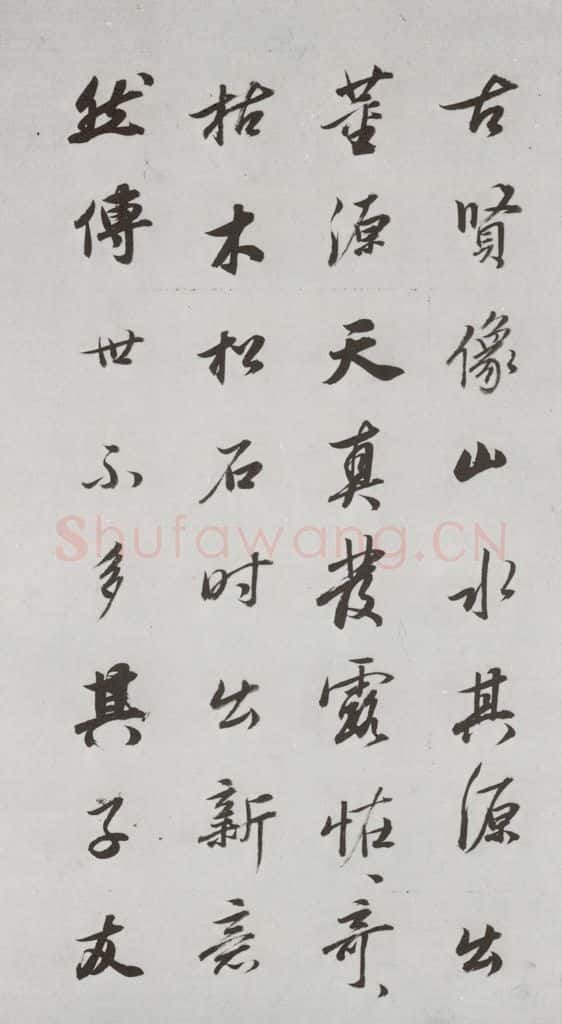 古賢像山水其源出
董源天真發露怪〻奇〻
枯木松石时出新意
然傳世不多其子友
Shufawang.CN